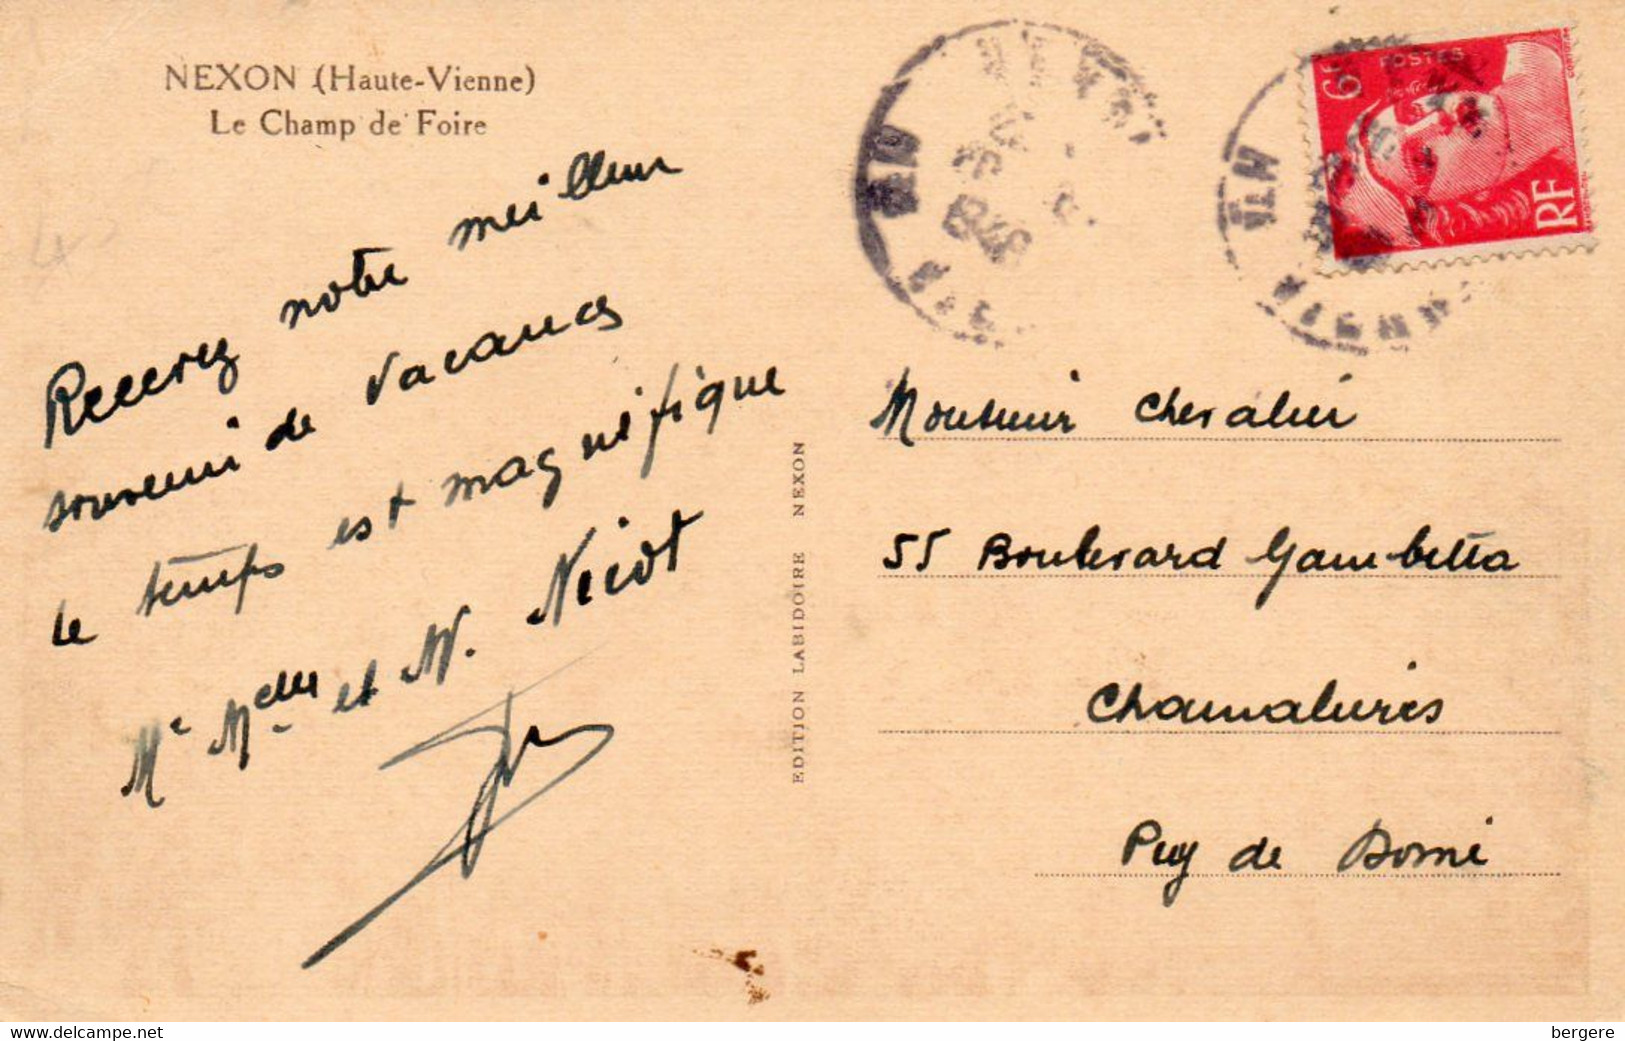 NEXON (Haute-Vienne)
Le Champ de Foire
Recevez notre meilleur
souvenir de vacances
le temps est magnifique
Me Melles et M. Nicot
EDITION LABIDOIRE NEXON
1946
6F
POSTES
RF
Monsieur Chevalier
55 Boulevard Gambetta
Chamalières
Puy de Dome
www.delcampe.net
bergere